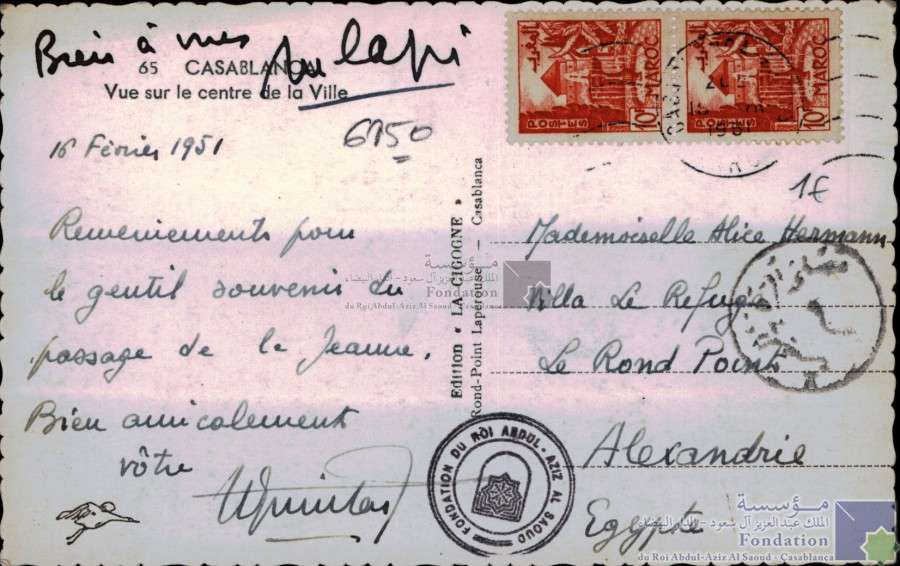 Bien à vous
65 CASABLANCA
Vue sur le centre de la Ville
16 Février 1951
6950
Remerciements pour
le gentil souvenir du
passage de la Jeanne.
Bien amicalement
vôtre
Edition « LA CIGOGNE »
Rond-Point Lapérouse — Casablanca
المغرب
POSTES
10F
MAROC
المغرب
POSTES
10F
MAROC
1951
1€
Mademoiselle Alice Hermann
Villa Le Refuge
Le Rond Point
Alexandrie
Egypte
FONDATION DU ROI ABDUL-AZIZ AL SAOUD
مؤسسة
الملك عبدالعزيز آل سعود - الدار البيضاء
Fondation
du Roi Abdul-Aziz Al Saoud - Casablanca
مؤسسة
الملك عبدالعزيز آل سعود - الدار البيضاء
Fondation
du Roi Abdul-Aziz Al Saoud - Casablanca